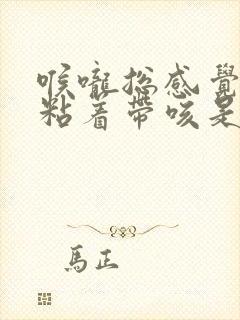 喉嚨總感覺
粘着帶咳是
馬正